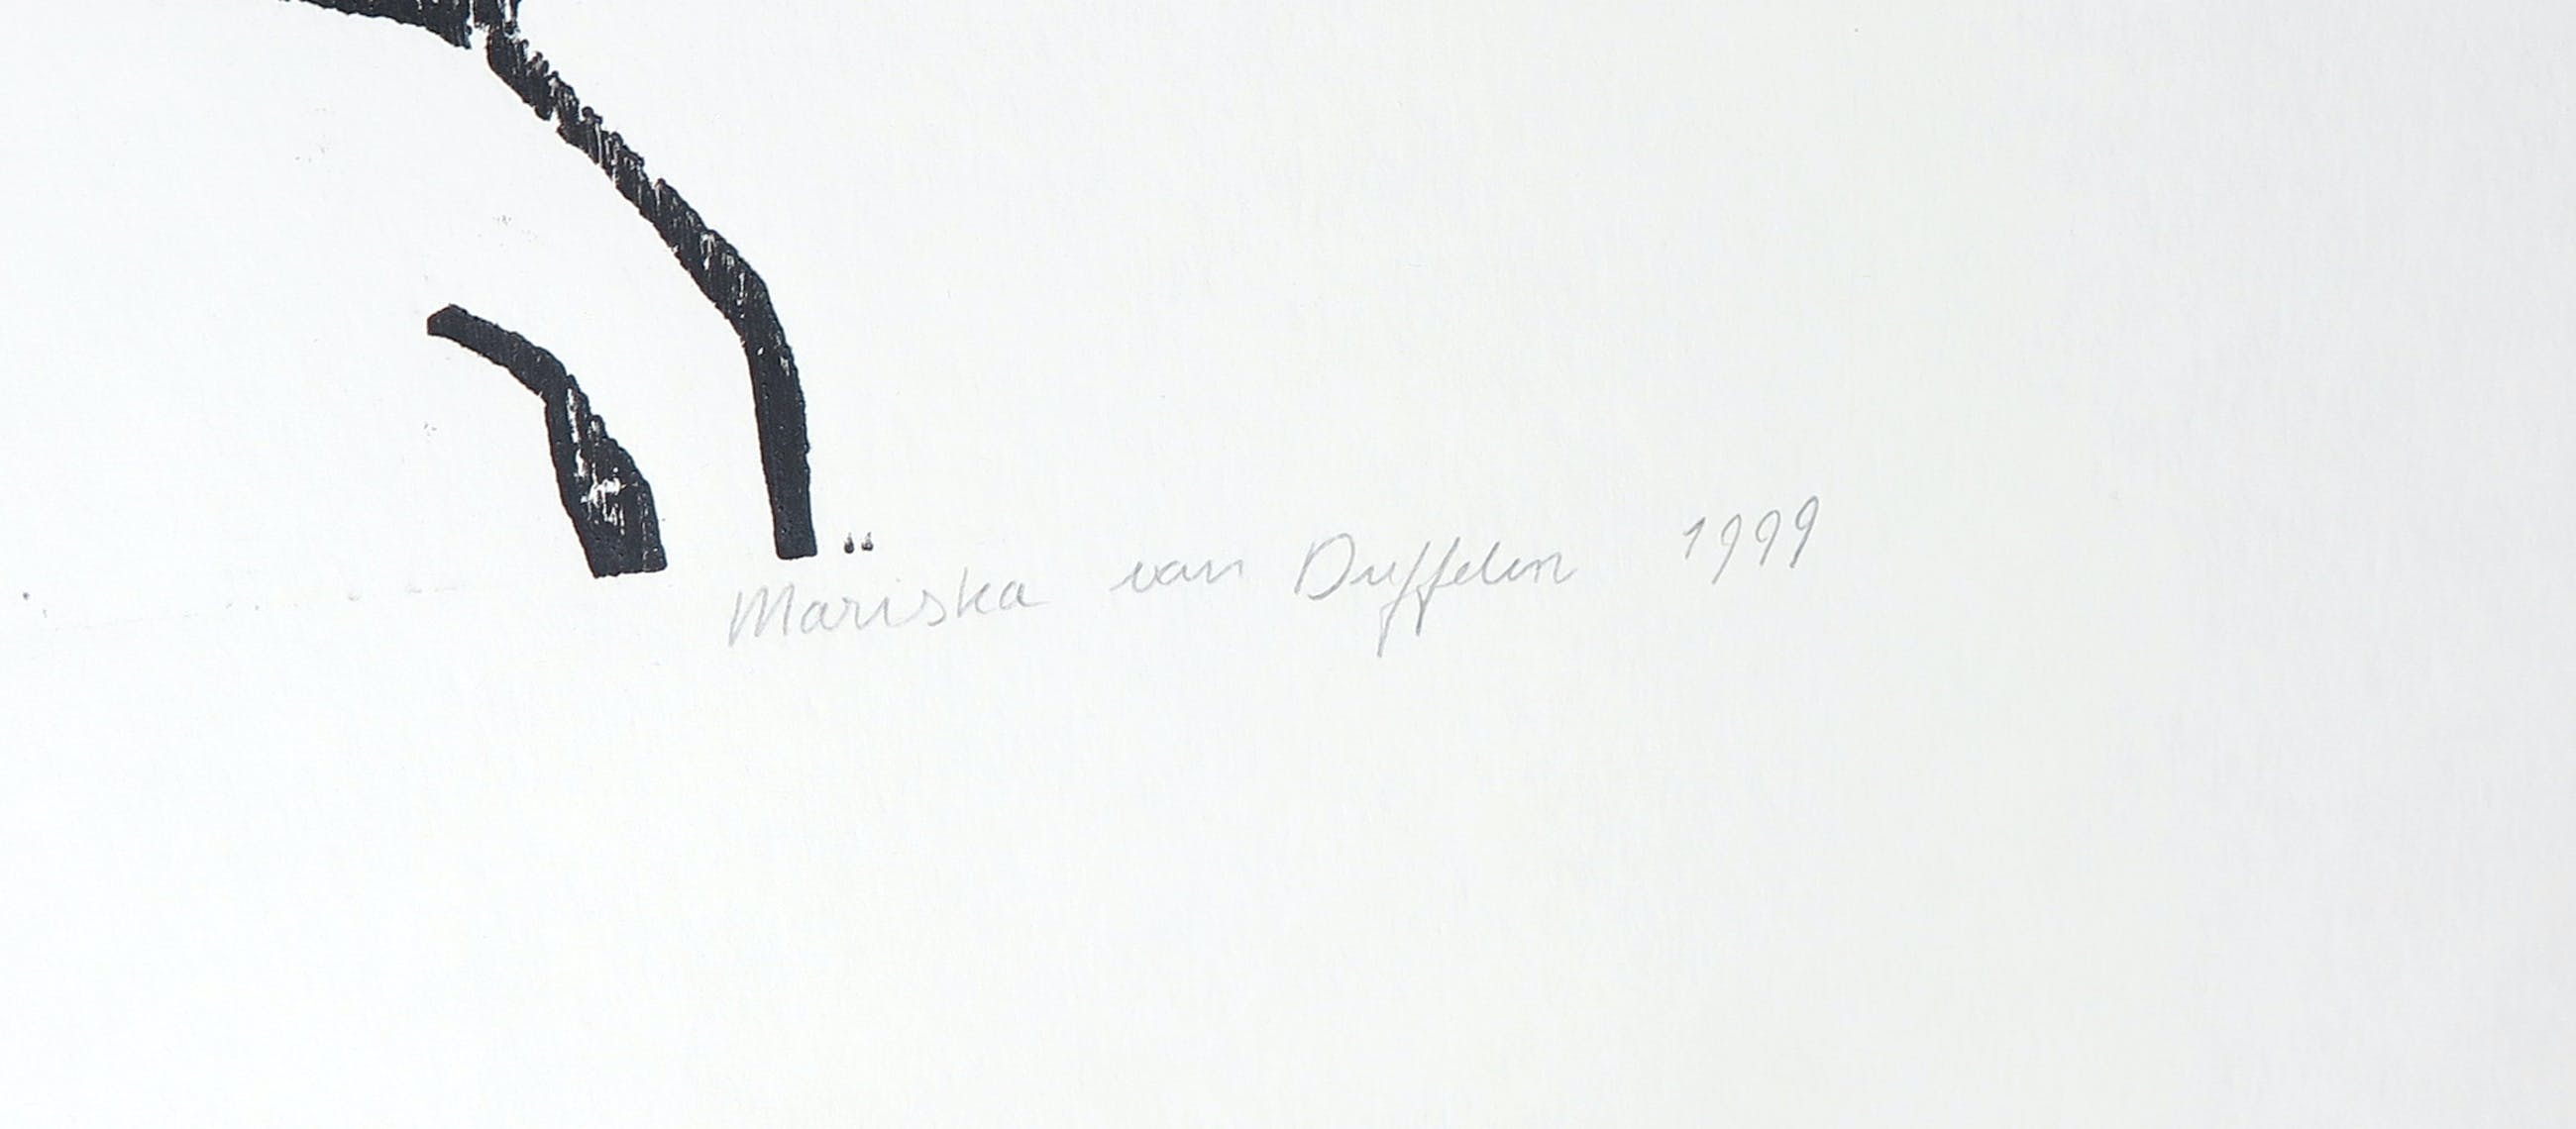 Mariska van Duffelen 1999